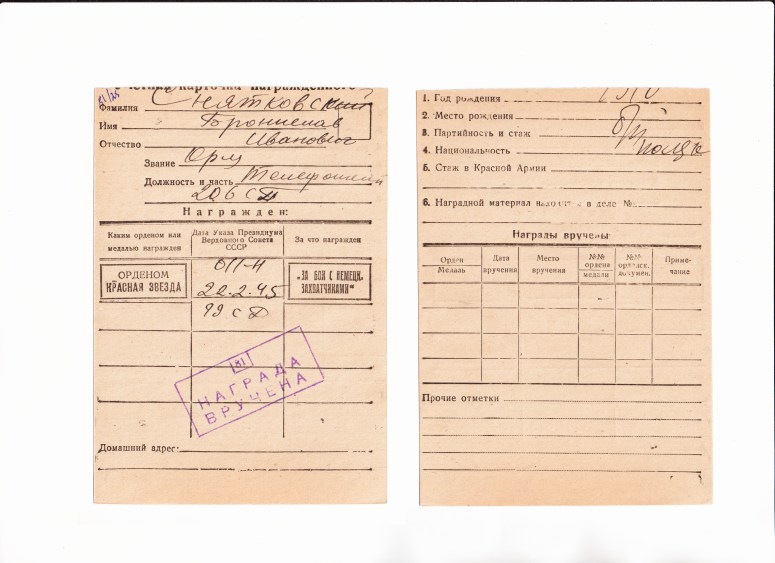 51/25
четная карточка награжденного
Фамилия Снятковский
Имя Бронислав
Отчество Иванович
Звание
Должность и часть Телефонист
206 сд
Награжден:
Каким орденом или медалью награжден
Дата Указа Президиума Верховного Совета СССР
За что награжден
ОРДЕНОМ КРАСНАЯ ЗВЕЗДА
011-н
22.2.45
99 сд
„ЗА БОИ С НЕМЕЦК. ЗАХВАТЧИКАМИ“
81
НАГРАДА
ВРУЧЕНА
Домашний адрес:
1. Год рождения 1910
2. Место рождения
3. Партийность и стаж б/п
4. Национальность поляк
5. Стаж в Красной Армии
6. Наградной материал находится в деле №
Награды вручены
Орден
Медаль
Дата вручения
Место вручения
№№ ордена
медали
№№ орденск. докумен.
Примечание
Прочие отметки